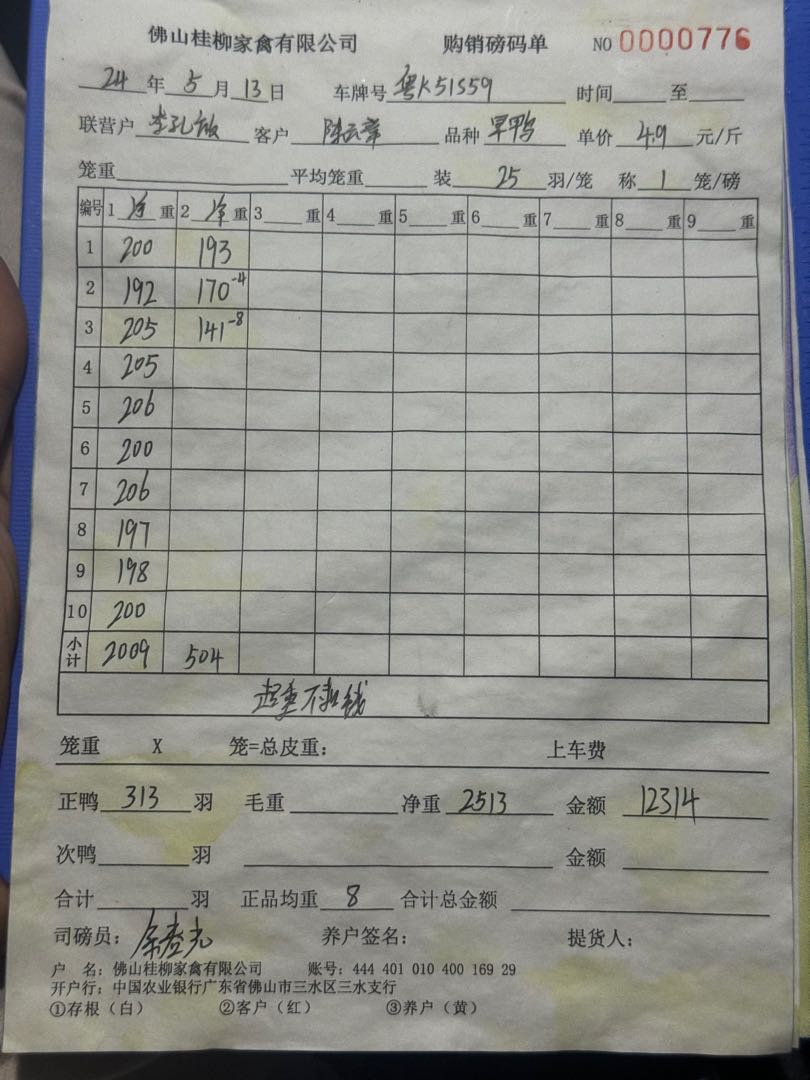 佛山桂柳家禽有限公司 购销磅码单 NO 0000776
24年5月13日 车牌号 粤K51S59 时间 至
联营户 客户 陈云章 品种 旱鸭 单价 4.9 元/斤
笼重 平均笼重 装 25 羽/笼 称 1 笼/磅
编号 1 净 重 2 净 重 3 重 4 重 5 重 6 重 7 重 8 重 9 重
1 200 193
2 192 170-4
3 205 141-8
4 205
5 206
6 200
7 206
8 197
9 198
10 200
小计 2009 504
超重不扣钱
笼重 X 笼=总皮重: 上车费
正鸭 313 羽 毛重 净重 2513 金额 12314
次鸭 羽 金额
合计 羽 正品均重 8 合计总金额
司磅员: 养户签名: 提货人:
户 名: 佛山桂柳家禽有限公司 账号: 444 401 010 400 169 29
开户行: 中国农业银行广东省佛山市三水区三水支行
①存根(白) ②客户(红) ③养户(黄)